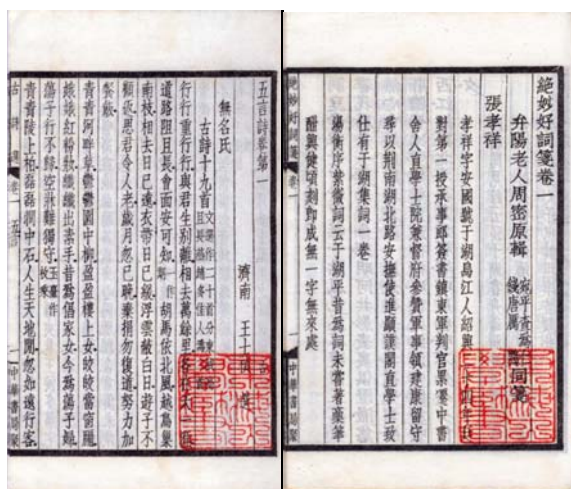 絕妙好詞箋卷一
弁陽老人周密原輯 宛平查為仁 錢唐厲鶚 同箋
張孝祥
孝祥字安國號于湖烏江人紹興
對第一授承事郎簽書鎮東軍判官累遷中書
舍人直學士院兼督府參贊軍事領建康留守
尋以荊南湖北路安撫使進顯謨閣直學士致
仕有于湖集詞一卷
湯衡序紫微詞云于湖平昔為詞未嘗著藁筆
酣興健頃刻即成無一字無來處
絕妙好詞箋 卷一 一 中華書局聚
五言詩卷第一
濟南 王士
無名氏
古詩十九首
行行重行行與君生別離相去萬餘里各在天一涯
道路阻且長會面安可知 胡馬依北風越鳥巢
南枝相去日已遠衣帶日已緩浮雲蔽白日遊子不
顧返思君令人老歲月忽已晚棄捐勿復道努力加
餐飯
青青河畔草鬱鬱園中柳盈盈樓上女皎皎當窗牖
娥娥紅粉妝纖纖出素手昔為倡家女今為蕩子婦
蕩子行不歸空牀難獨守 玉臺作枚乘
青青陵上柏磊磊澗中石人生天地間忽如遠行客
古詩選 卷一 五言 一 中華書局聚